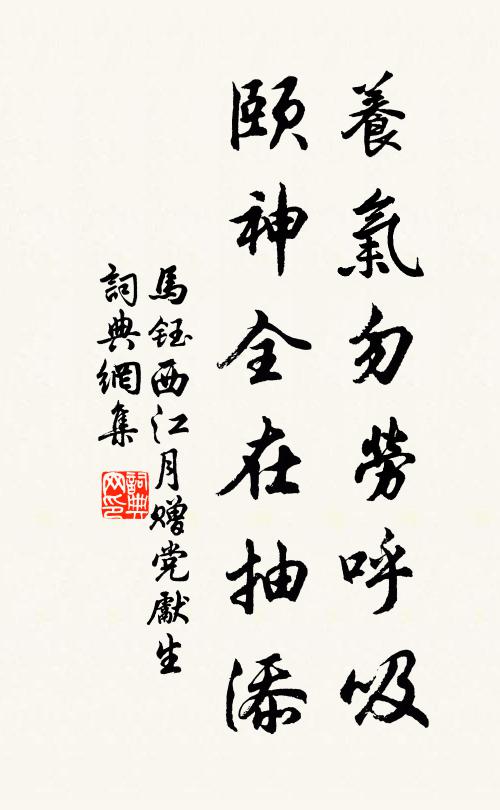 養氣勿勞呼吸
頤神全在抽添
馬鈺西江月赠党獻生
詞典網集
詞典
网印